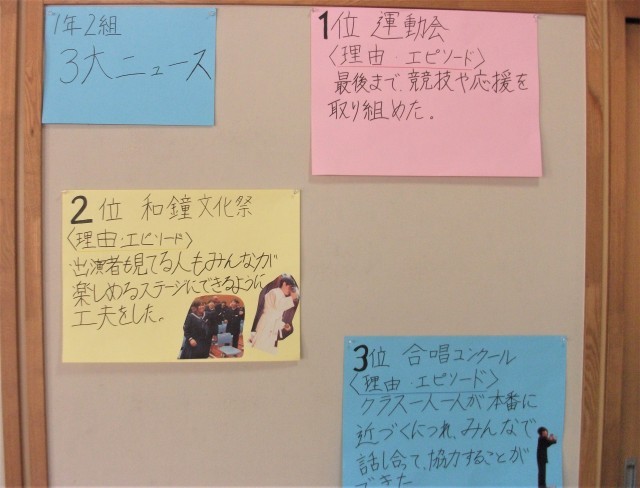 1年2組
3大ニュース
1位 運動会
〈理由・エピソード〉
最後まで、競技や応援を
取り組めた。
2位 和鐘文化祭
〈理由・エピソード〉
出演者も見てる人もみんなが
楽しめるステージにできるように
工夫をした。
3位 合唱コンクール
〈理由・エピソード〉
クラス一人一人が本番に
近づくにつれ、みんなで
話し合って、協力することが
できた